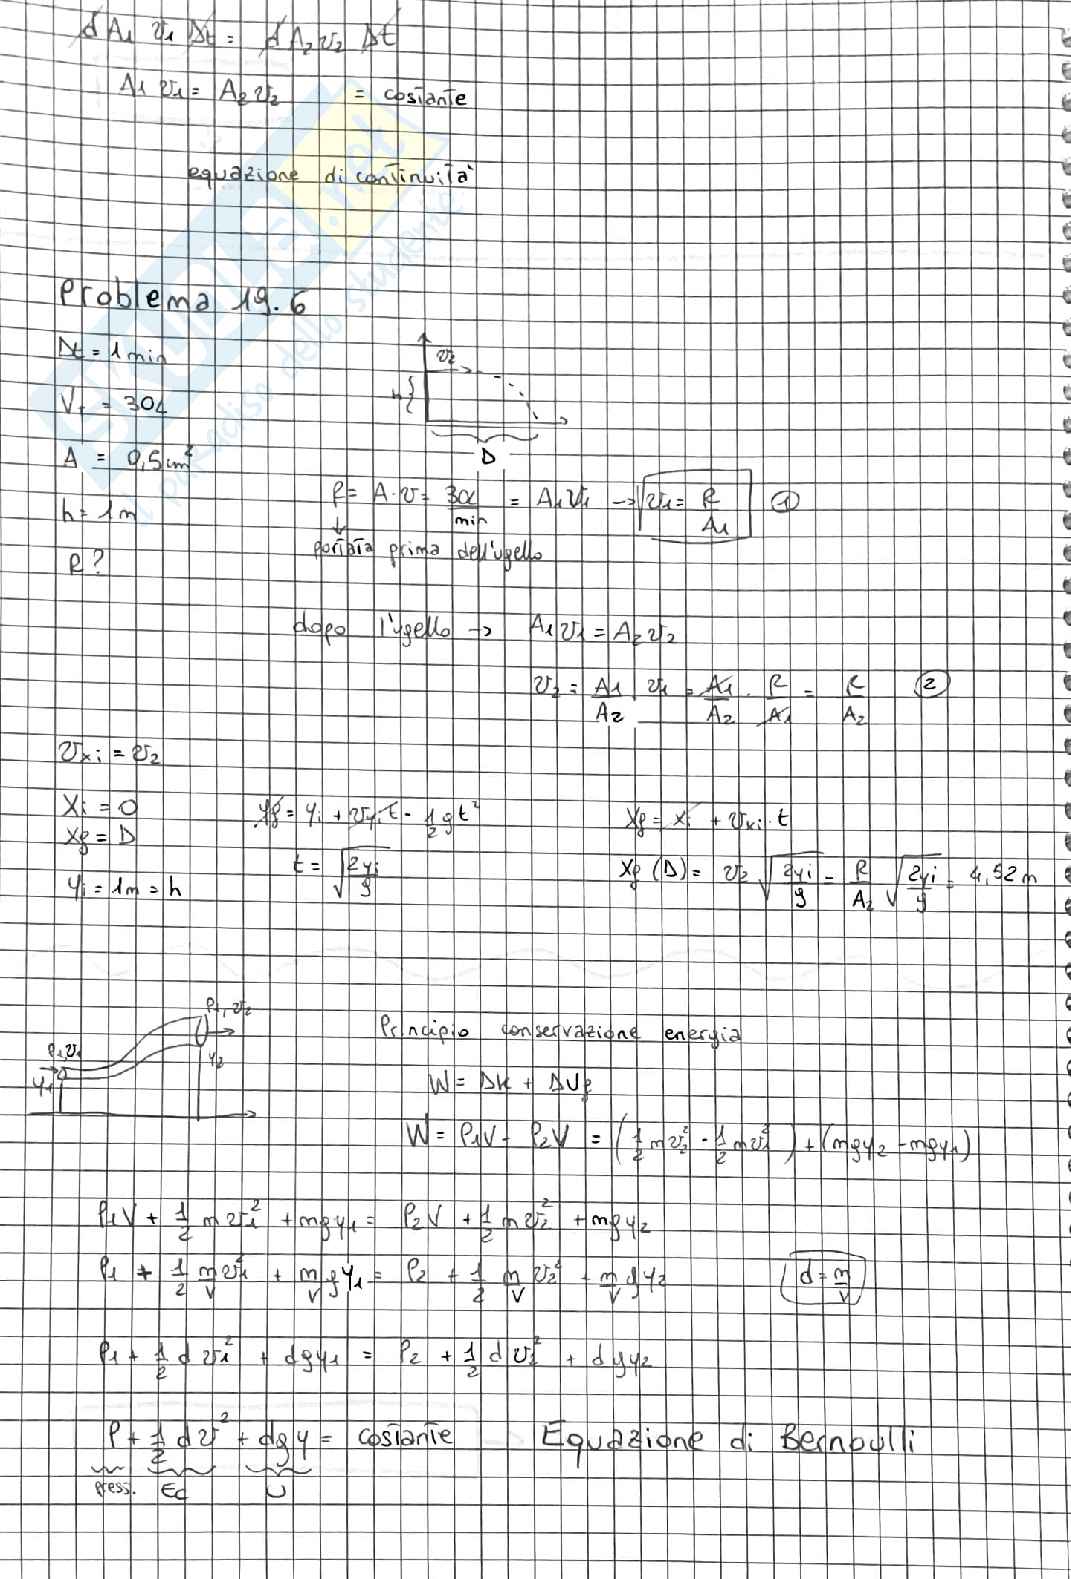 d A₁ v₁ Δt = d A₂ v₂ Δt
A₁ v₁ = A₂ v₂ = costante
equazione di continuità
Problema 19.6
Δt = 1 min
V = 30L
A = 0,5 cm²
h = 1 m
R?
v₂
h
D
R = A·v = 30L/min = A₁v₁ → v₁ = R/A₁ ①
portata prima dell'ugello
dopo l'ugello → A₁v₁ = A₂v₂
v₂ = A₁/A₂ v₁ = A₁/A₂ · R/A₁ = R/A₂ ②
vxi = v₂
xi = 0
xf = D
yi = 1m = h
yf = yi + vyi t - 1/2 gt²
t = √(2yi/g)
xf = xi + vxi·t
xf (D) = v₂ √(2yi/g) = R/A₂ √(2yi/g) = 4,52 m
P₁, v₂
P₁, v₁
y₂
y₁
Principio conservazione energia
W = ΔK + ΔUg
W = P₁V - P₂V = (1/2 mv₂² - 1/2 mv₁²) + (mgy₂ - mgy₁)
P₁V + 1/2 mv₁² + mgy₁ = P₂V + 1/2 mv₂² + mgy₂
P₁ + 1/2 m/V v₁² + m/V gy₁ = P₂ + 1/2 m/V v₂² + m/V gy₂
d = m/V
P₁ + 1/2 d v₁² + dgy₁ = P₂ + 1/2 d v₂² + dgy₂
P + 1/2 dv² + dgy = costante Equazione di Bernoulli
press. Ec U
skuola.net
il paradiso dello studente